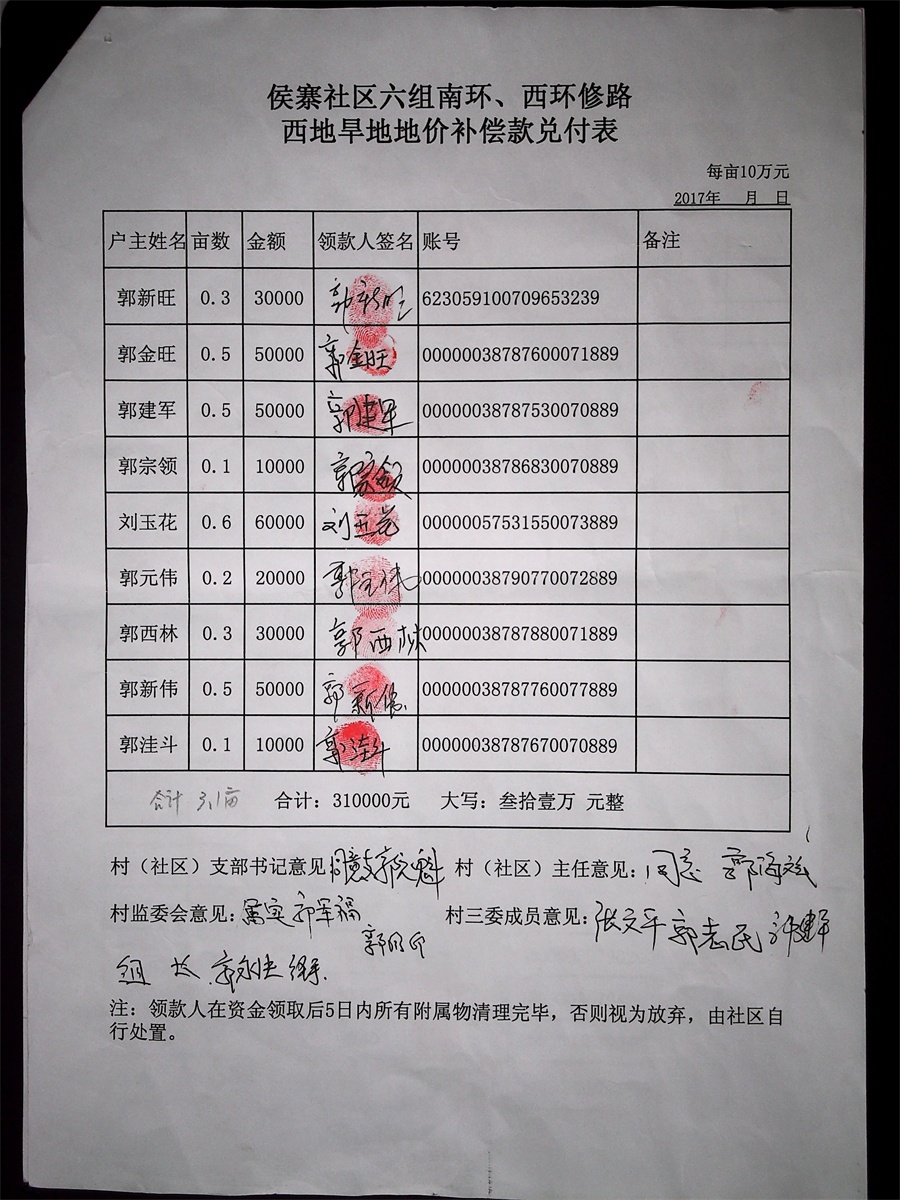 侯寨社区六组南环、西环修路
西地旱地地价补偿款兑付表
每亩10万元
2017年 月 日
户主姓名 亩数 金额 领款人签名 账号 备注
郭新旺 0.3 30000 郭新旺 623059100709653239
郭金旺 0.5 50000 郭金旺 00000038787600071889
郭建军 0.5 50000 郭建军 00000038787530070889
郭宗领 0.1 10000 郭宗领 00000038786830070889
刘玉花 0.6 60000 刘玉花 00000057531550073889
郭元伟 0.2 20000 郭元伟 00000038790770072889
郭西林 0.3 30000 郭西林 00000038787880071889
郭新伟 0.5 50000 郭新伟 00000038787760077889
郭洼斗 0.1 10000 郭洼斗 00000038787670070889
合计 3.1亩 合计：310000元 大写：叁拾壹万 元整
村（社区）支部书记意见 村（社区）主任意见：同意
村监委会意见：属实 郭军福 村三委成员意见：张文平 郭志民
组长
注：领款人在资金领取后5日内所有附属物清理完毕，否则视为放弃，由社区自
行处置。